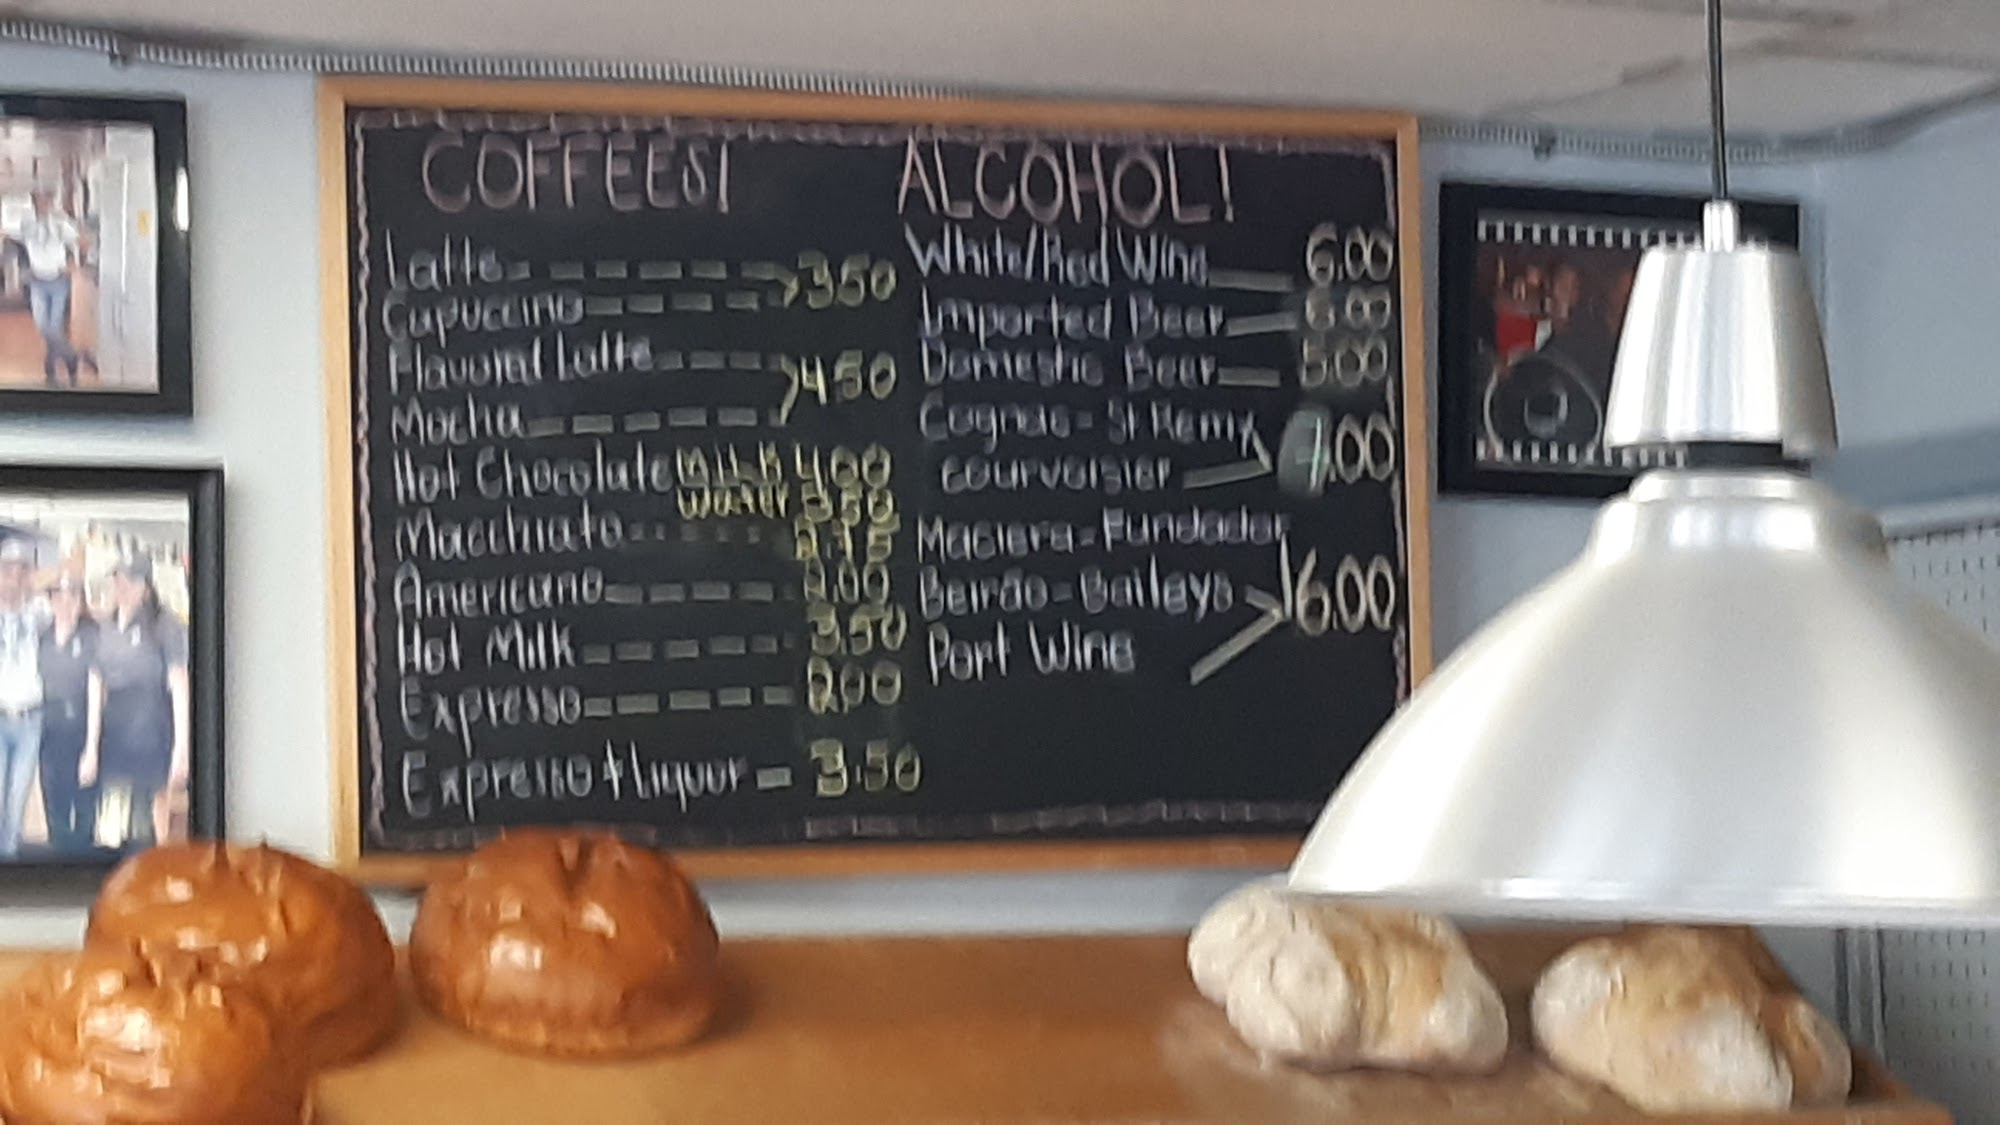 COFFEES!
Latte
Capuccino 3.50
Flavour Latte
Mocha 4.50
Hot Chocolate Milk 4.00
Water 3.50
Macchiato
Americano 2.00
Hot Milk 3.50
Expresso 2.00
Expresso + Liquor - 3.50
ALCOHOL!
White/Red Wine 6.00
Imported Beer 6.00
Domestic Beer 5.00
Cognac - St Remy
courvoisier 7.00
Maciera - Fundador
Beirao - Baileys 6.00
Port Wine